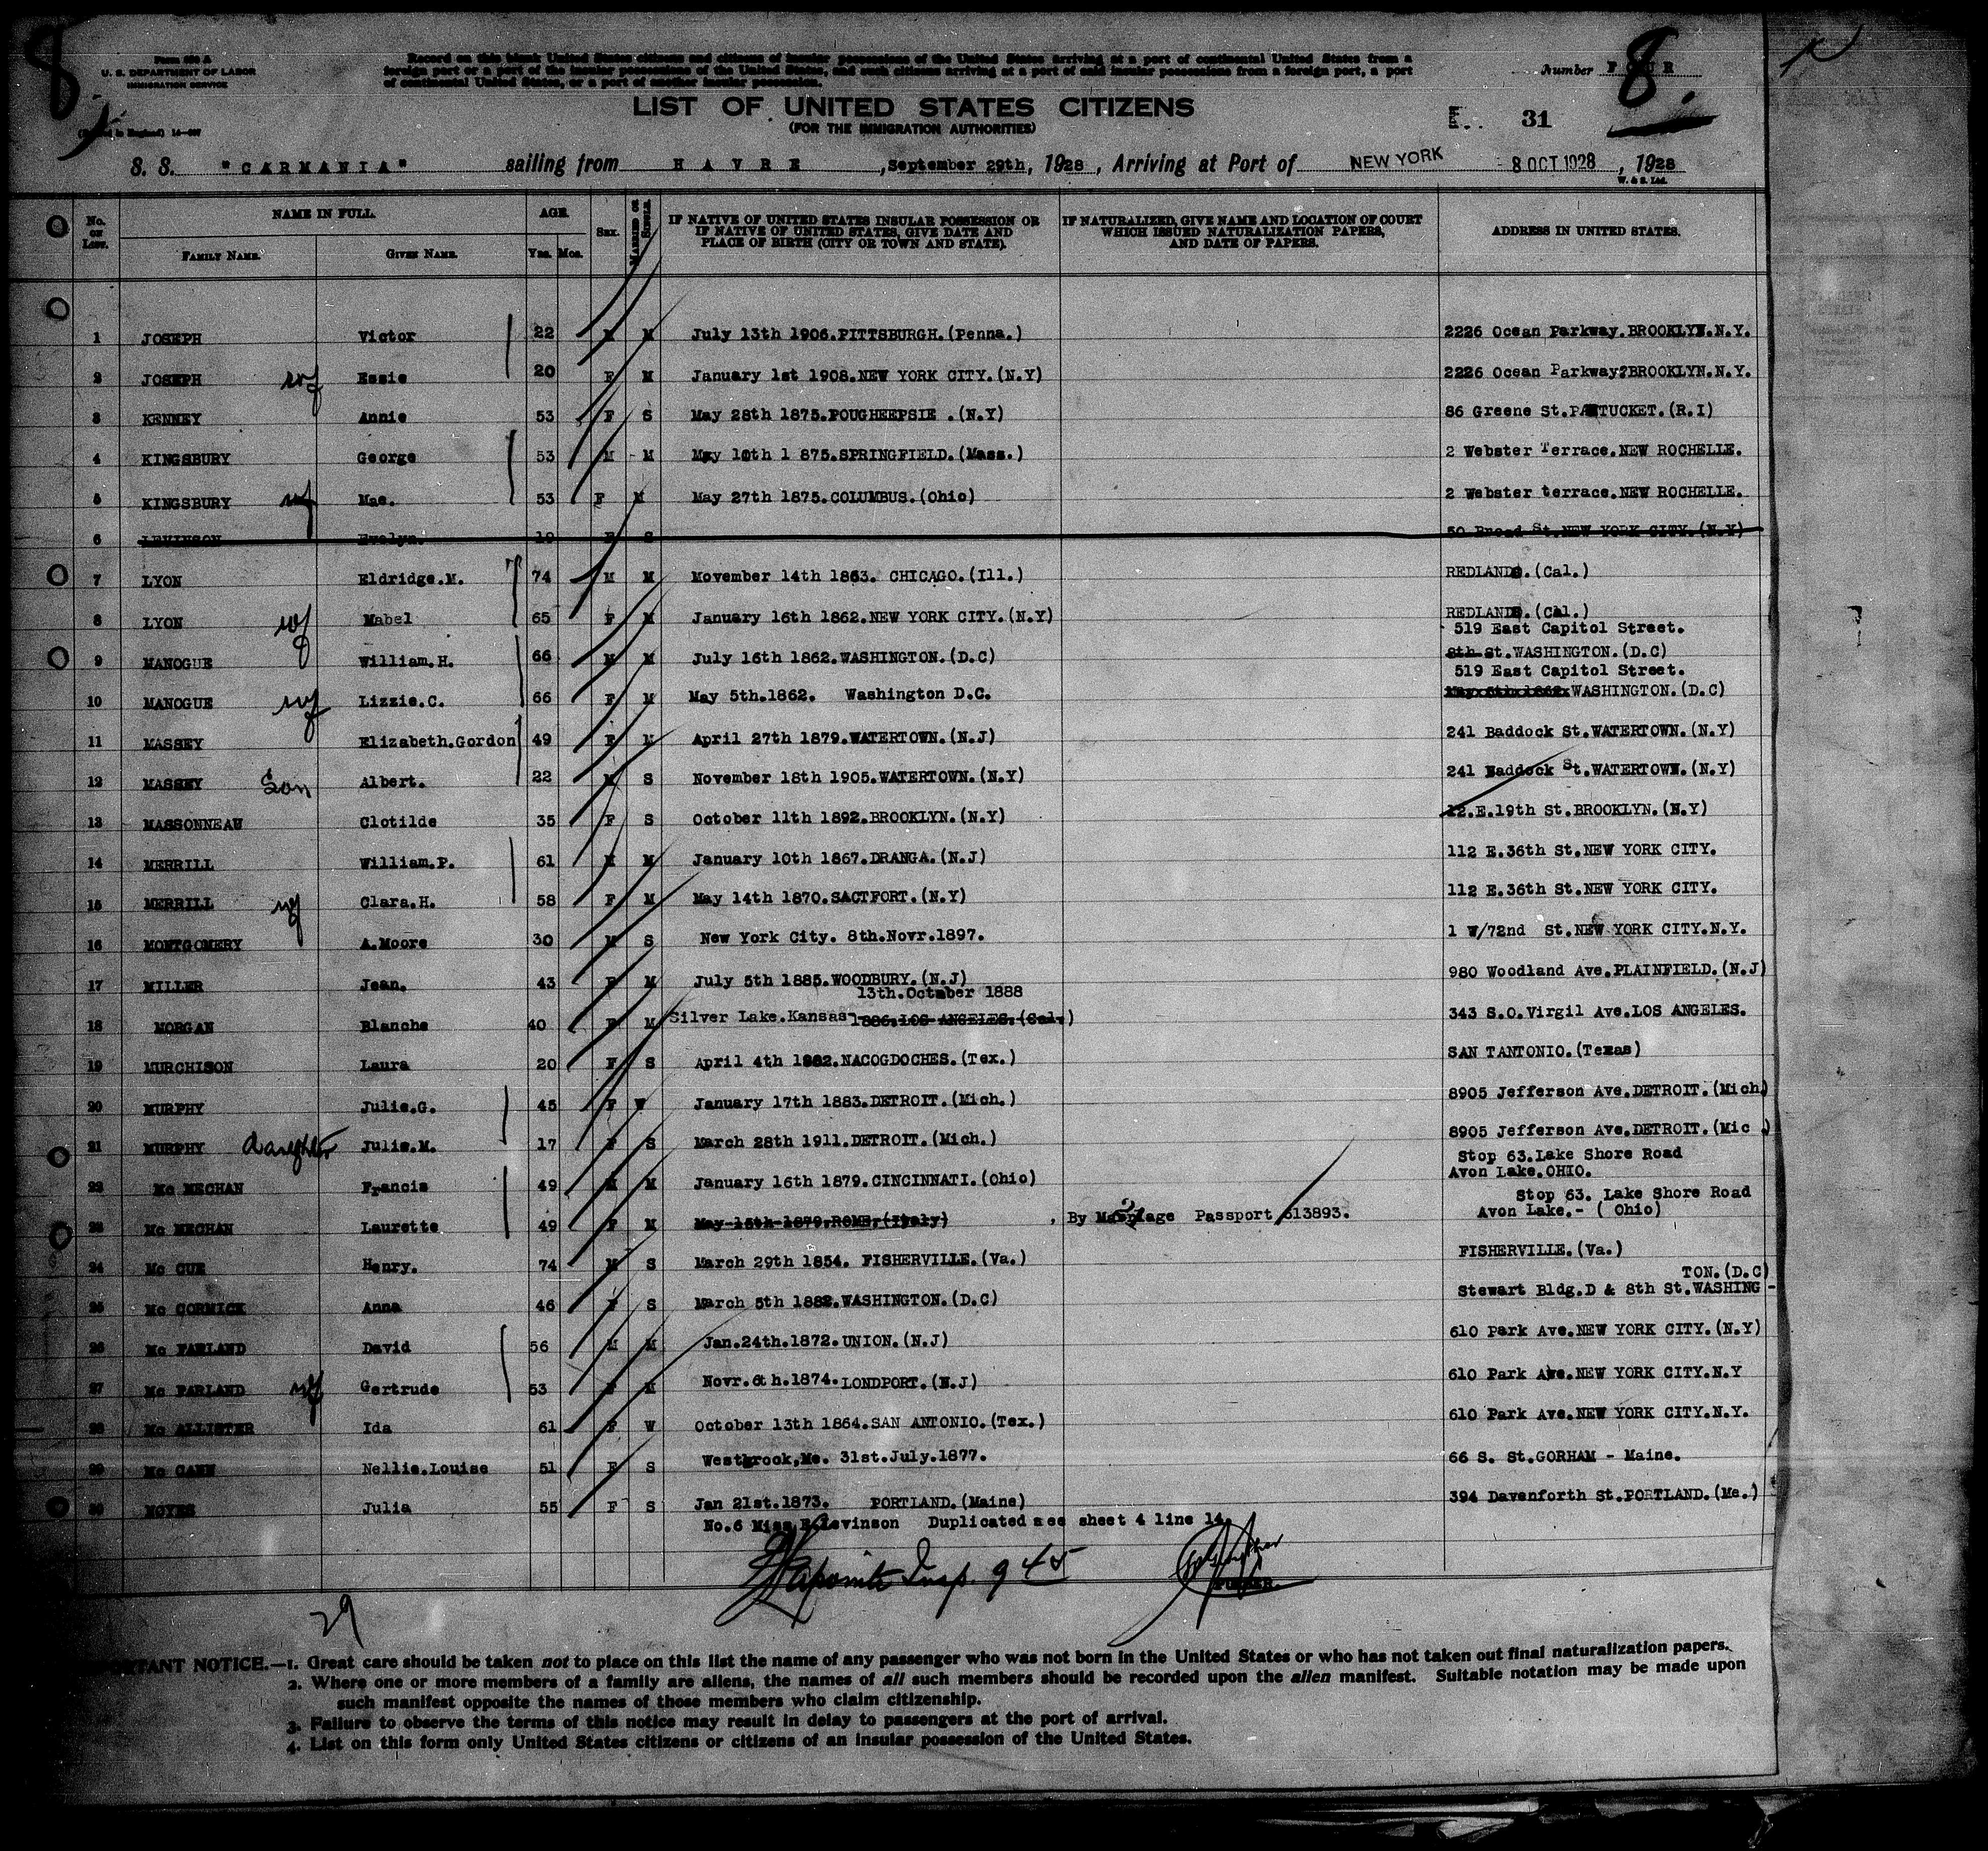 8
8.
Form 630 A
U. S. DEPARTMENT OF LABOR
IMMIGRATION SERVICE
Record on this blank United States citizens and citizens of insular possessions of the United States arriving at a port of continental United States from a
foreign port or a port of the insular possessions of the United States, and such citizens arriving at a port of said insular possessions from a foreign port, a port
of continental United States, or a port of another insular possession.
Number FOUR
LIST OF UNITED STATES CITIZENS
(FOR THE IMMIGRATION AUTHORITIES)
31
S. S. "CARMANIA" sailing from HAVRE, September 29th, 1928, Arriving at Port of NEW YORK 8 OCT 1928, 1928
W. & S. Ltd.
No. on List. NAME IN FULL. AGE. Sex. Married or Single. IF NATIVE OF UNITED STATES INSULAR POSSESSION OR IF NATIVE OF UNITED STATES, GIVE DATE AND PLACE OF BIRTH (CITY OR TOWN AND STATE). IF NATURALIZED, GIVE NAME AND LOCATION OF COURT WHICH ISSUED NATURALIZATION PAPERS, AND DATE OF PAPERS. ADDRESS IN UNITED STATES.
Family Name. Given Name. Yrs. Mos.
1 JOSEPH Victor 22 M M July 13th 1906.PITTSBURGH.(Penna.) 2226 Ocean Parkway.BROOKLYN.N.Y.
2 JOSEPH wf Essie 20 F M January 1st 1908.NEW YORK CITY.(N.Y) 2226 Ocean Parkway?BROOKLYN.N.Y.
3 KENNEY Annie 53 F S May 28th 1875.POUGHEEPSIE .(N.Y) 86 Greene St.PAWTUCKET.(R.I)
4 KINGSBURY George 53 M - M May 10th 1 875.SPRINGFIELD.(Mass.) 2 Webster Terrace.NEW ROCHELLE.
5 KINGSBURY wf Mae. 53 F M May 27th 1875.COLUMBUS.(Ohio) 2 Webster terrace.NEW ROCHELLE.
6 LEVINSON Evelyn. 19 F S 50 Broad St.NEW YORK CITY.(N.Y)
7 LYON Eldridge.M. 74 M M November 14th 1863. CHICAGO.(Ill.) REDLANDS.(Cal.)
8 LYON wf Mabel 65 F M January 16th 1862.NEW YORK CITY.(N.Y) REDLANDS.(Cal.)
519 East Capitol Street.
9 MANOGUE William.H. 66 M M July 16th 1862.WASHINGTON.(D.C) 8th St.WASHINGTON.(D.C)
519 East Capitol Street.
10 MANOGUE wf Lizzie.C. 66 F M May 5th.1862. Washington D.C. WASHINGTON.(D.C)
11 MASSEY Elizabeth.Gordon 49 F M April 27th 1879.WATERTOWN.(N.J) 241 Baddock St.WATERTOWN.(N.Y)
12 MASSEY Son Albert. 22 M S November 18th 1905.WATERTOWN.(N.Y) 241 Baddock St.WATERTOWN.(N.Y)
13 MASSONNEAU Clotilde 35 F S October 11th 1892.BROOKLYN.(N.Y) 12.E.19th St.BROOKLYN.(N.Y)
14 MERRILL William.P. 61 M M January 10th 1867.DRANGA.(N.J) 112 E.36th St.NEW YORK CITY.
15 MERRILL wf Clara.H. 58 F M May 14th 1870.SACTFORT.(N.Y) 112 E.36th St.NEW YORK CITY.
16 MONTGOMERY A.Moore 30 M S New York City. 8th.Novr.1897. 1 W/72nd St.NEW YORK CITY.N.Y.
17 MILLER Jean. 43 F M July 5th 1885.WOODBURY.(N.J) 980 Woodland Ave.PLAINFIELD.(N.J)
13th.October 1888
18 MORGAN Blanche 40 F M Silver Lake.Kansas 1886.LOS ANGELES.(Cal.) 343 S.O.Virgil Ave.LOS ANGELES.
19 MURCHISON Laura 20 F S April 4th 1882.NACOGDOCHES.(Tex.) SAN TANTONIO.(Texas)
20 MURPHY Julie.G. 45 F W January 17th 1883.DETROIT.(Mich.) 8905 Jefferson Ave.DETROIT.(Mich.)
21 MURPHY daughter Julie.M. 17 F S March 28th 1911.DETROIT.(Mich.) 8905 Jefferson Ave.DETROIT.(Mic )
Stop 63.Lake Shore Road
22 Mc MECHAN Francis 49 M M January 16th 1879.CINCINNATI.(Ohio) Avon Lake.OHIO.
Stop 63. Lake Shore Road
23 Mc MECHAN Laurette 49 F M May 15th 1879.ROME.(Italy) , By Marriage Passport 613893. Avon Lake.- ( Ohio)
24 Mc CUE Henry. 74 M S March 29th 1854. FISHERVILLE.(Va.) FISHERVILLE.(Va.)
TON.(D.C)
25 Mc CORMICK Anna 46 F S March 5th 1882.WASHINGTON.(D.C) Stewart Bldg.D & 8th St.WASHING -
26 Mc FARLAND David 56 M M Jan.24th.1872.UNION.(N.J) 610 Park Ave.NEW YORK CITY.(N.Y)
27 Mc FARLAND wf Gertrude 53 F M Novr.6th.1874.LONDPORT.(N.J) 610 Park Ave.NEW YORK CITY.N.Y
28 Mc ALLISTER Ida 61 F W October 13th 1864.SAN ANTONIO.(Tex.) 610 Park Ave.NEW YORK CITY.N.Y.
29 Mc CANN Nellie.Louise 51 F S Westbrook,Me. 31st.July.1877. 66 S. St.GORHAM - Maine.
30 NOYES Julia 55 F S Jan 21st.1873. PORTLAND.(Maine) 394 Davenforth St.PORTLAND.(Me.)
No.6 Miss E.Levinson Duplicated see sheet 4 line 14.
Insp. 9 45
PURSER.
29
IMPORTANT NOTICE.—1. Great care should be taken not to place on this list the name of any passenger who was not born in the United States or who has not taken out final naturalization papers.
2. Where one or more members of a family are aliens, the names of all such members should be recorded upon the alien manifest. Suitable notation may be made upon
such manifest opposite the names of those members who claim citizenship.
3. Failure to observe the terms of this notice may result in delay to passengers at the port of arrival.
4. List on this form only United States citizens or citizens of an insular possession of the United States.